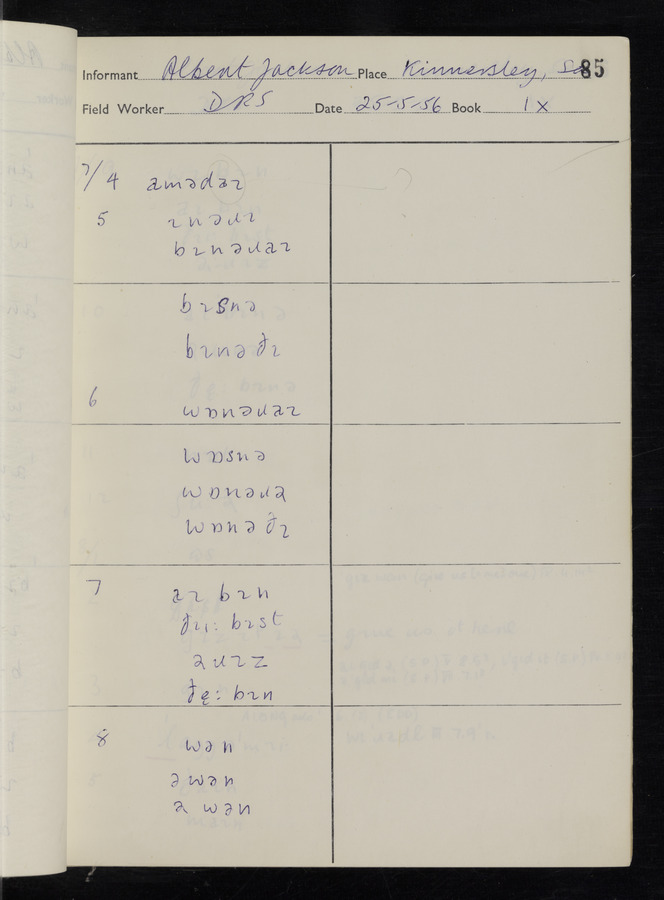 Informant Albert Jackson Place Kinnersley, Sa 85
Field Worker DRS Date 25-5-56 Book IX
7/4 amədaɪ
5 ɪnəɹɪ
bɪnəɹaɪ
bɪsnə
bɪnəðɪ
6 wɒnəɹaɪ
wɒsnə
wɒnəɹa
wɒnəðɪ
7 aɪ bɪn
ðɪi: bɪst
aɹɪz
ðe̞: bɪn
8 wən
əwən
a wən